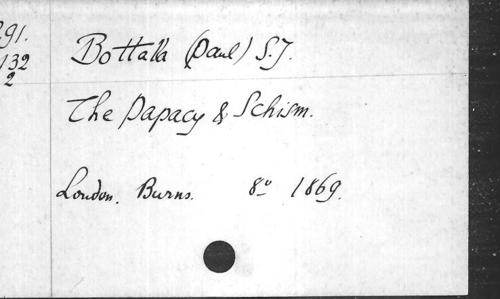 291.
132
2
Bottalla (Paul) S.J.
The Papacy & Schism.
London. Burns. 8º 1869.